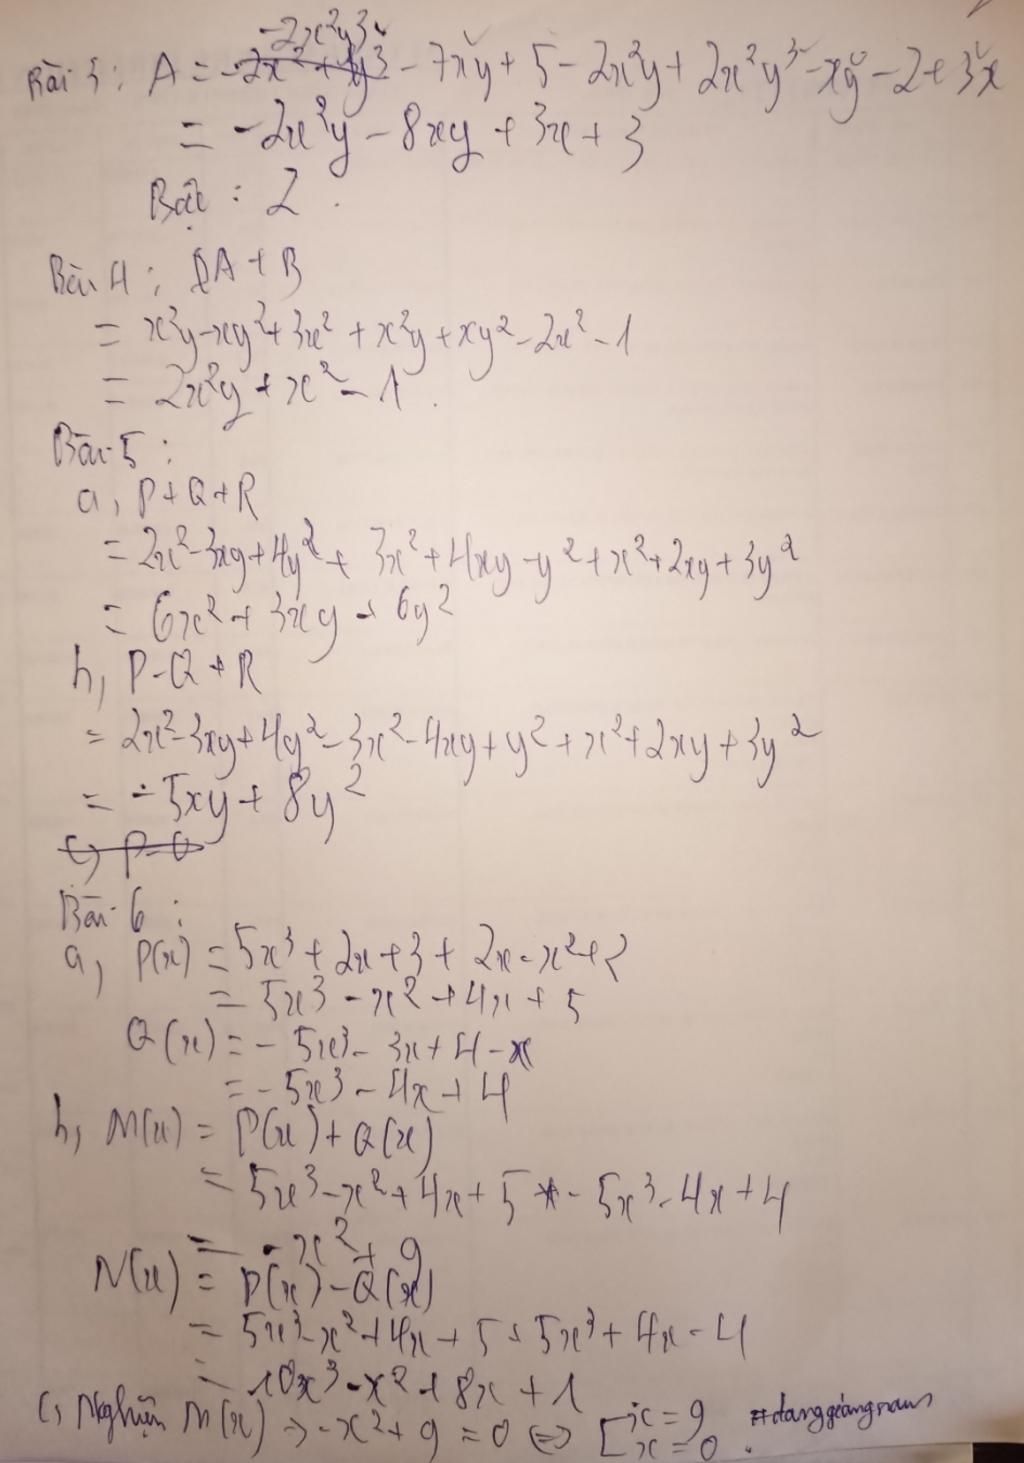 -2x²y³
Bài 3: A = -2x² + 4y³ - 7xy + 5 - 2x²y + 2x²y³ - xy - 2 + 3x
= -2x²y - 8xy + 3x + 3
Bậc: 2.
Bài 4: A + B
= x²y - xy² + 3x² + x²y + xy² - 2x² - 1
= 2x²y + x² - 1.
Bài 5:
a, P + Q + R
= 2x² - 3xy + 4y² + 3x² + 4xy - y² + x² + 2xy + 3y²
= 6x² + 3xy + 6y²
b, P - Q + R
= 2x² - 3xy + 4y² - 3x² - 4xy + y² + x² + 2xy + 3y²
= -5xy + 8y²
c, P - Q
Bài 6:
a, P(x) = 5x³ + 2x + 3 + 2x - x² + 2
= 5x³ - x² + 4x + 5
Q(x) = - 5x³ - 3x + 4 - x
= - 5x³ - 4x + 4
b, M(x) = P(x) + Q(x)
= 5x³ - x² + 4x + 5 - 5x³ - 4x + 4
= -x² + 9
N(x) = P(x) - Q(x)
= 5x³ - x² + 4x + 5 + 5x³ + 4x - 4
= 10x³ - x² + 8x + 1
c, Nghiệm M(x) → -x² + 9 = 0 ⇔ [x = 9
x = 0.
#danggiangnam